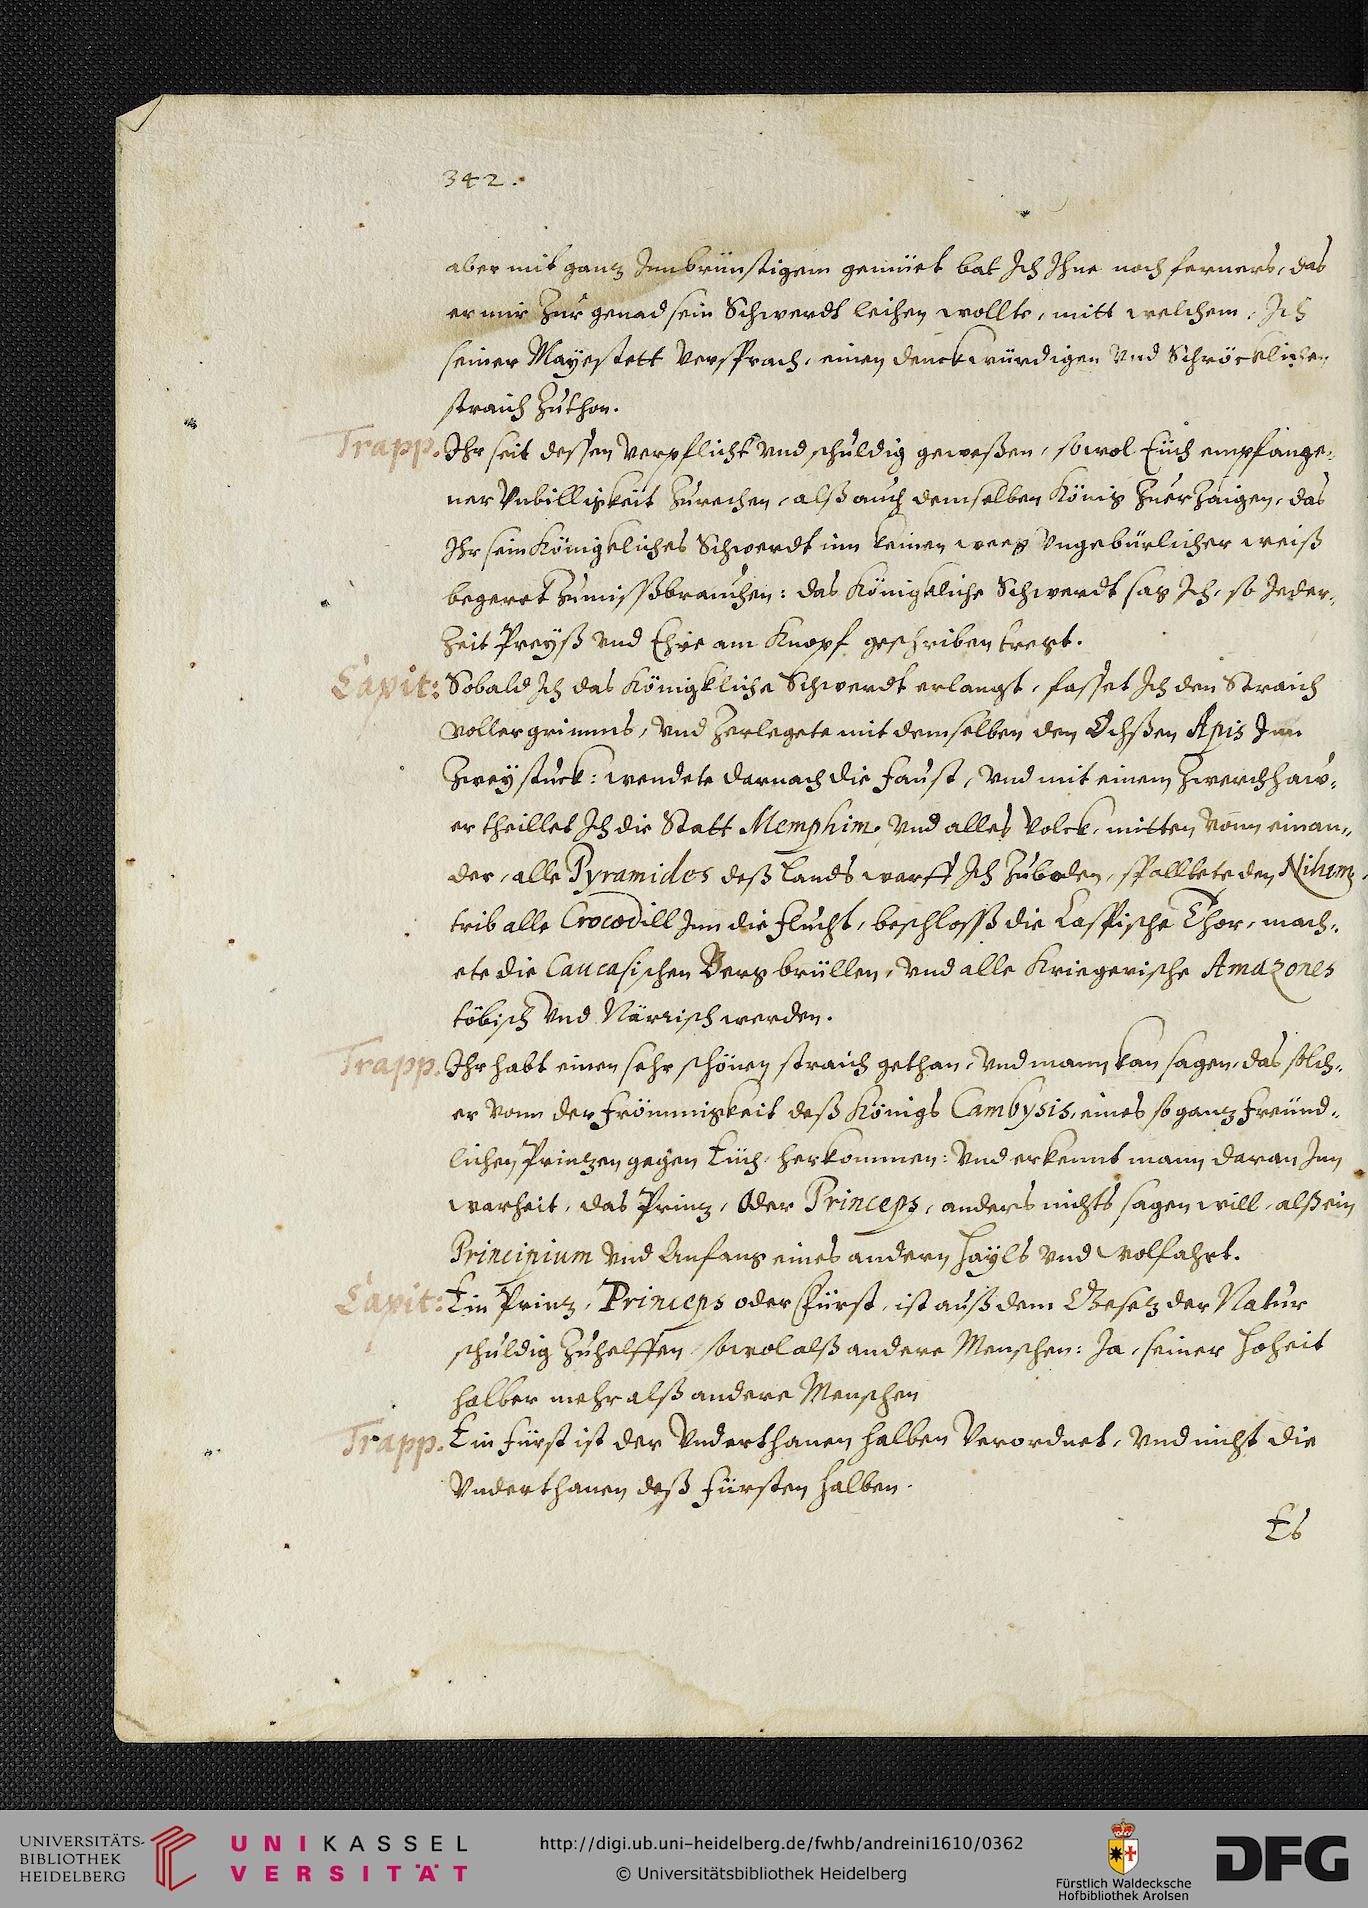 342.
aber mit ganz Innbrünstigem gemüet bat Ich Ihne noch ferners, das
er mir Zur genad sein Schwerdt leihen wollte, mitt welchem, Ich
seiner Mayestett Versprach, einen denckwürdigen Vnd Schröcklichen
straich Zuthon.
Trapp. Ihr seit dessen Verpflicht Vnd schuldig geweßen, sowol Euch empfange-
ner Vnbilligkeit Zurechen, alß auch demselben König ZuerZaigen, das
Ihr sein Königkliches Schwerdt inn keinen weeg Vngebürlicher weiß
begeret Zumissßbrauchen: das Königkliche Schwerdt sag Ich, so Jeder-
Zeit Preyß vnd Ehre am Knopf geschriben tregt.
Capit: Sobald Ich das Königkliche Schwerdt erlangt, fasset Ich den Straich
voller grimms, vnd Zerlegete mit demselben den Ochßen Apis Inn
Zwey stuck: wendete darnach die Faust, vnd mit einem Zwerchhaw-
er theillet Ich die Statt Memphim, Vnd alles Volck, mitten Vonn einan-
der, alle Pyramides deß Lands warff Ich Zuboden, spalltete den Nilum,
trib alle Crocodill Inn die Flucht, beschlosß die Caspische Thor, mach-
ete die Caucasischen Berg brüllen, vnd alle Kriegerische Amazones
töbisch Vnd Närrisch werden.
Trapp. Ihr habt einen sehr schönen straich gethan, Vnd mann kan sagen, das solch-
er vonn der Frömmigkeit deß Königs Cambysis, eines so ganz Freünd-
lichen Printzen gegen Euch, herkommen: Vnd erkennt mann daran Inn
warheit, das Prinz, Oder Princeps, anders nichts sagen will, alß ein
Principium Vnd Anfang eines andern Hayls Vnd wolfahrt.
Capit: Ein Prinz, Princeps oder Fürst, ist auß dem Gesetz der Natur
schuldig Zuhelffen, sowol alß andere Menschen: Ja, seiner Hoheit
halber mehr alß andere Menschen
Trapp. Ein Fürst ist der Vnderthanen halben Verordnet, Vnd nicht die
Vnderthanen deß Fürsten halben.
Es
UNIVERSITÄTS-
BIBLIOTHEK
HEIDELBERG
UNIKASSEL
VERSITÄT
http://digi.ub.uni-heidelberg.de/fwhb/andreini1610/0362
© Universitätsbibliothek Heidelberg
Fürstlich Waldecksche
Hofbibliothek Arolsen
DFG